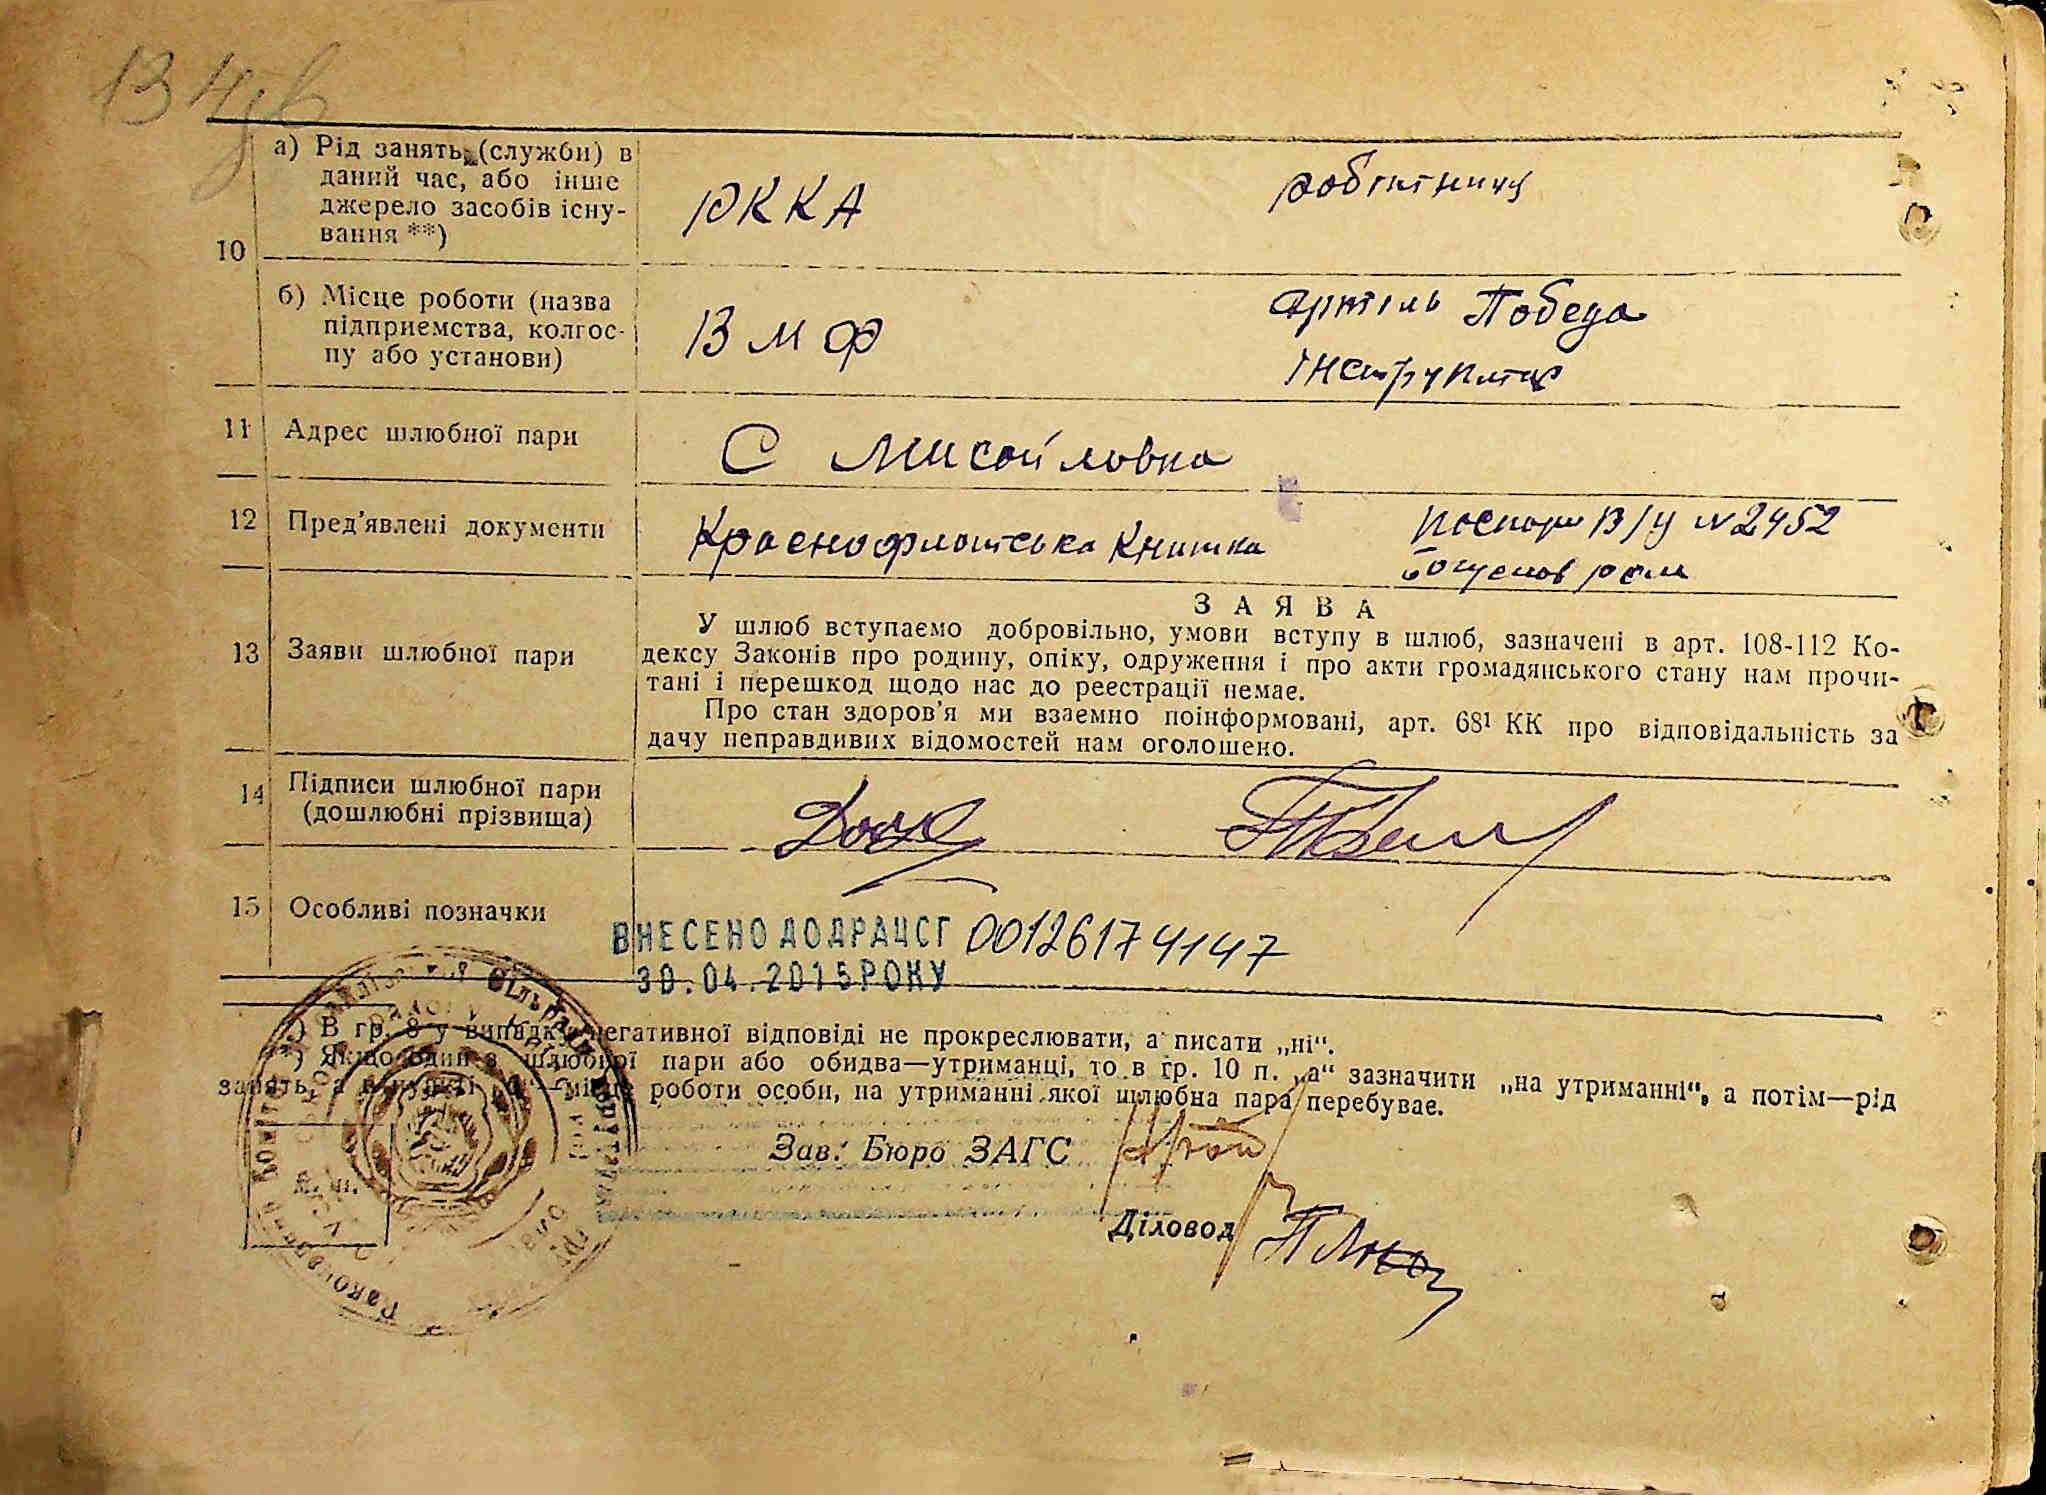 134
а) Рід занять (служби) в
даний час, або інше
джерело засобів існу-
вання **)
РККА
робітниця
10
б) Місце роботи (назва
підприємства, колгос-
пу або установи)
ВМФ
артіль Победа
11 Адрес шлюбної пари
С Мисайловка
12 Пред'явлені документи
Краснофлотська Книжка
Паспорт В/У №2452
13 Заяви шлюбної пари
ЗАЯВА
У шлюб вступаємо добровільно, умови вступу в шлюб, зазначені в арт. 108-112 Ко-
дексу Законів про родину, опіку, одруження і про акти громадянського стану нам прочи-
тані і перешкод щодо нас до реєстрації немає.
Про стан здоров'я ми взаємно поінформовані, арт. 68¹ КК про відповідальність за
дачу неправдивих відомостей нам оголошено.
14 Підписи шлюбної пари
(дошлюбні прізвища)
15 Особливі позначки
ВНЕСЕНО ДО ДРАЦСГ 00126174147
30.04.2015 РОКУ
*) В гр. 8 у випадку негативної відповіді не прокреслювати, а писати „ні“.
**) Якщо один з шлюбної пари або обидва—утриманці, то в гр. 10 п. „а“ зазначити „на утриманні“, а потім—рід
занять, а в пункті „б“—місце роботи особи, на утриманні якої шлюбна пара перебуває.
Зав. Бюро ЗАГС
М. п.
Діловод